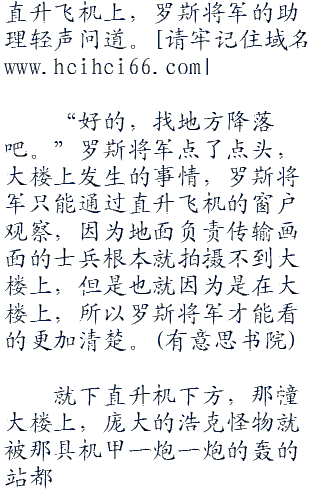 直升飞机上，罗斯将军的助
理轻声问道。[请牢记住域名
www.hcihci66.com|
“好的，找地方降落
吧。”罗斯将军点了点头，
大楼上发生的事情，罗斯将
军只能通过直升飞机的窗户
观察，因为地面负责传输画
面的士兵根本就拍摄不到大
楼上，但是也就因为是在大
楼上，所以罗斯将军才能看
的更加清楚。(有意思书院)
就下直升机下方，那幢
大楼上，庞大的浩克怪物就
被那具机甲一炮一炮的轰的
站都